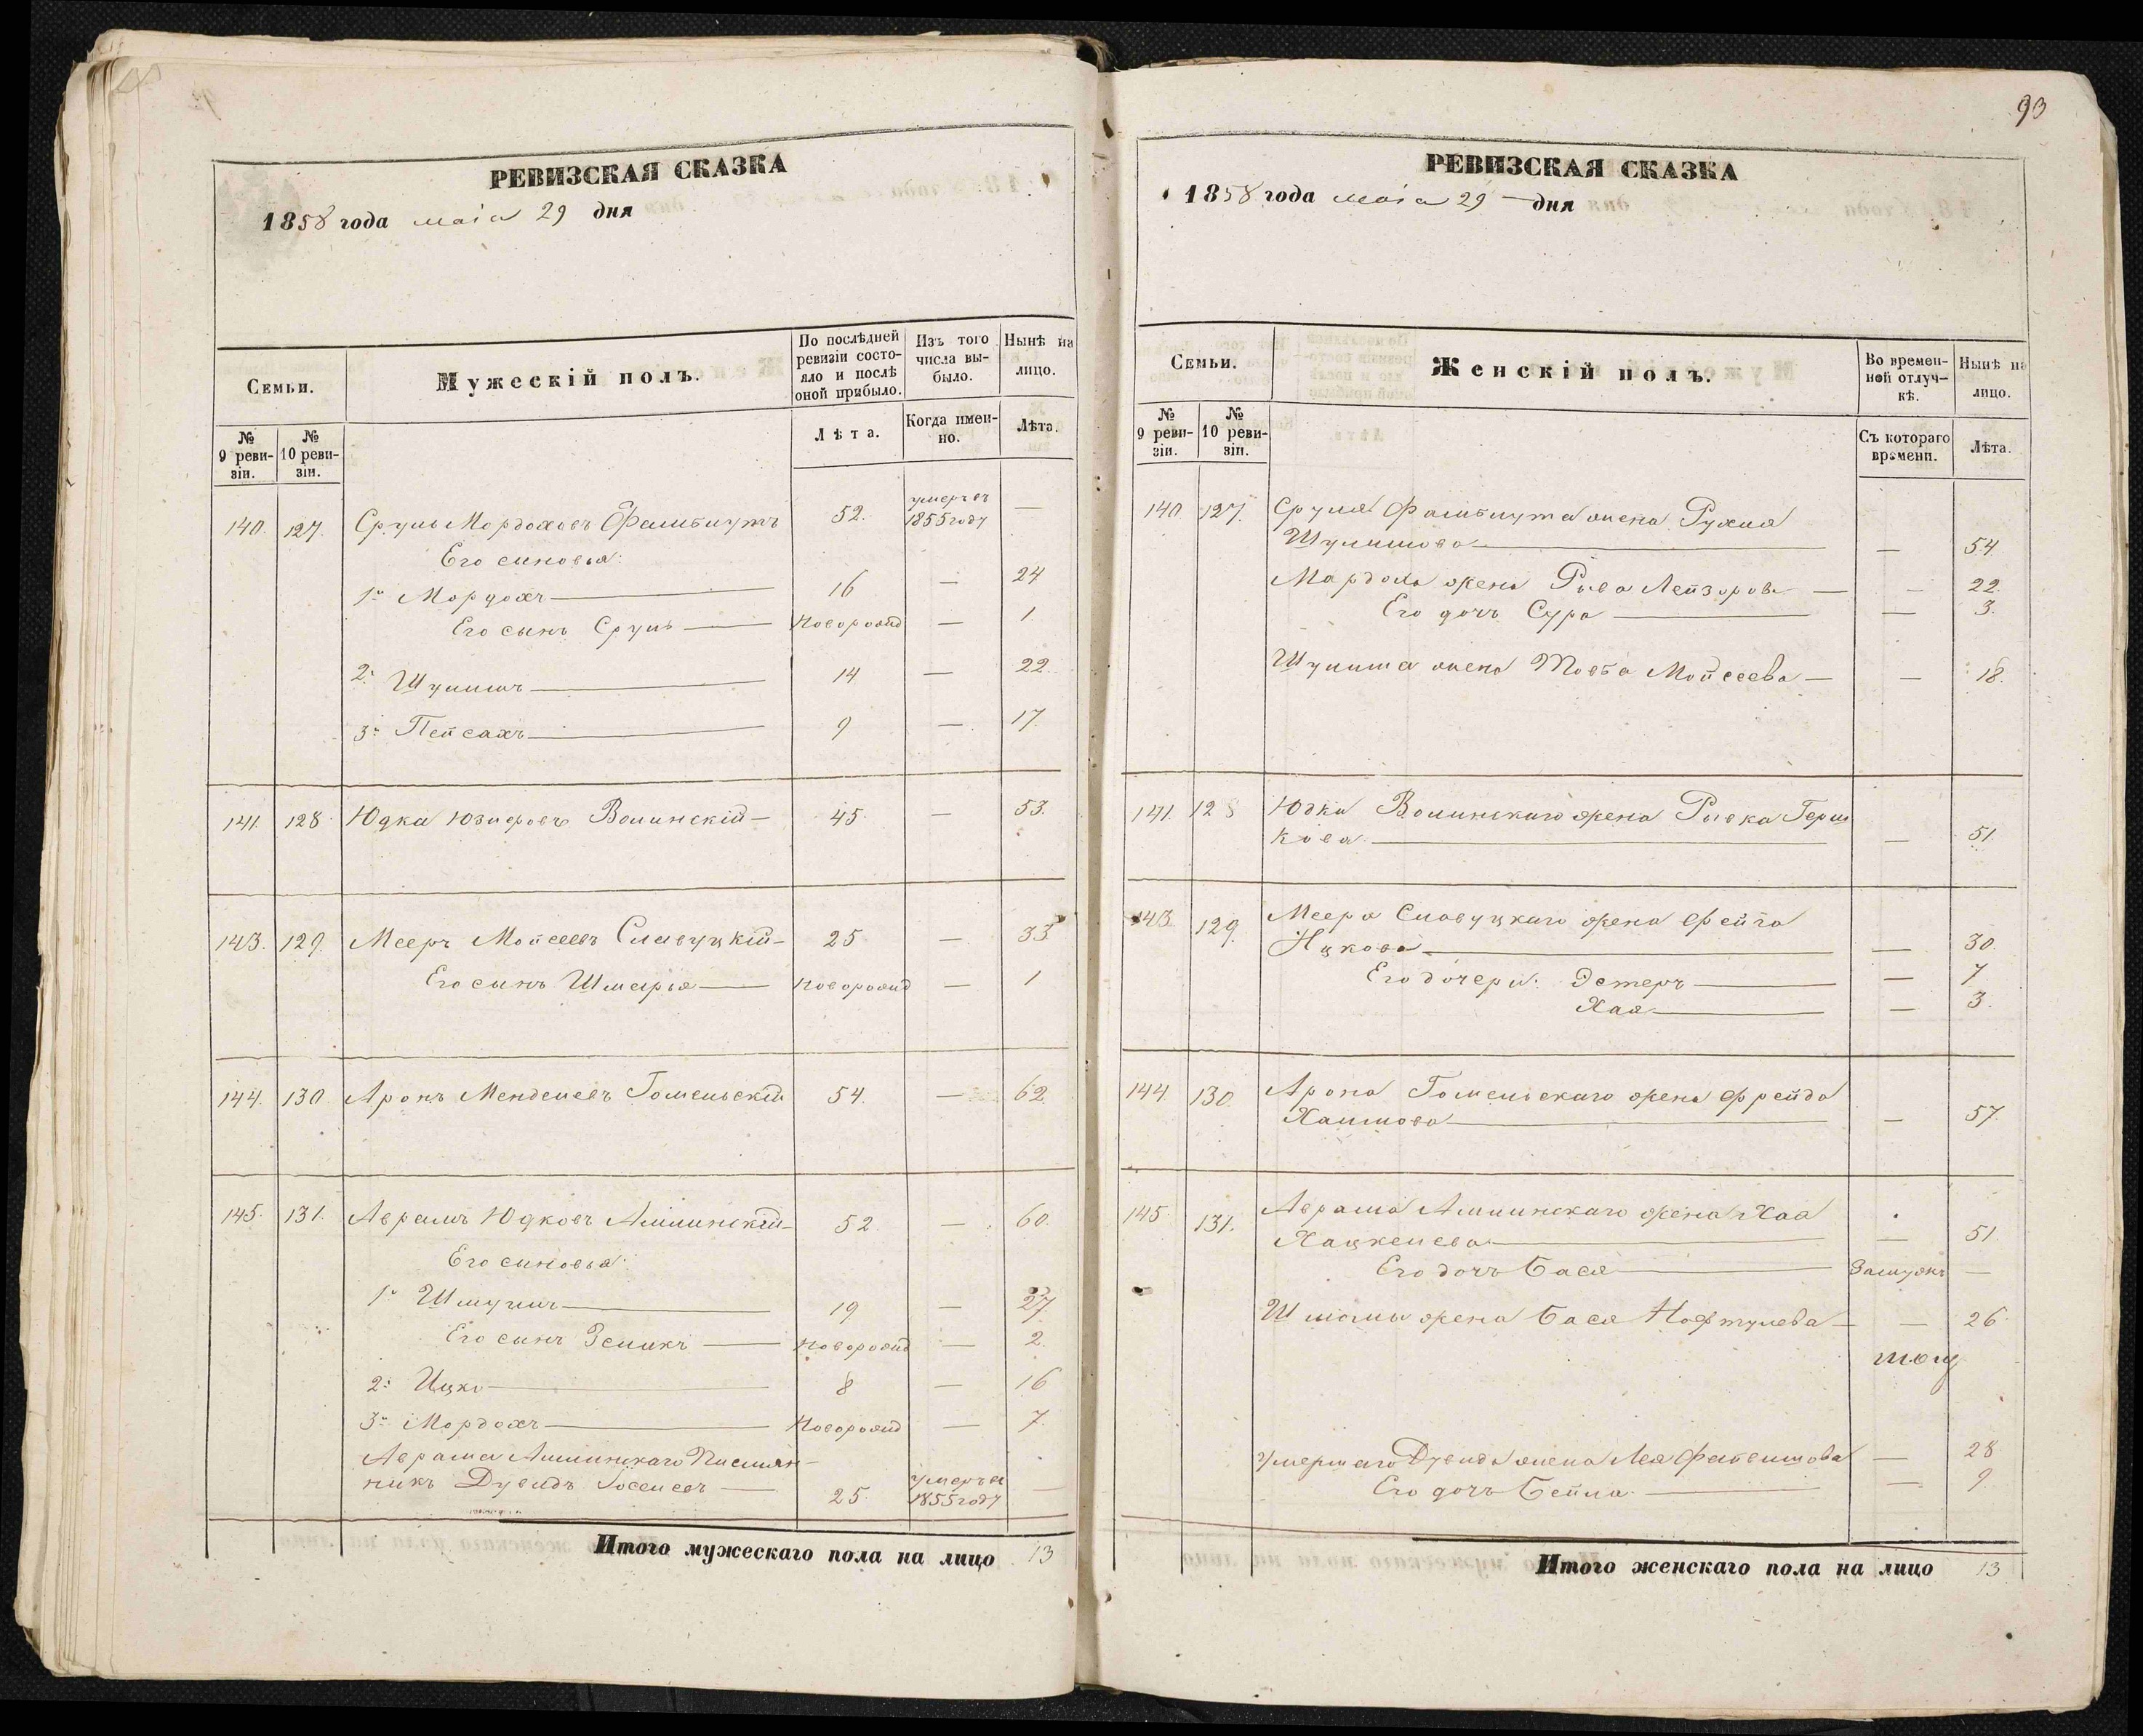 РЕВИЗСКАЯ СКАЗКА
1858 года маіа 29 дня
Семьи.
Мужескій полъ.
По послѣдней ревизіи состояло и послѣ оной прибыло.
Изъ того числа выбыло.
Нынѣ на лицо.
№ 9 ревизіи.
№ 10 ревизіи.
Лѣта.
Когда именно.
Лѣта.
140. 127. Сруль Мордоховъ 52. умеръ въ 1855 году —
Его сыновья:
1й Мордохъ — 16 — 24
Его сынъ Сруль — новорожд — 1
2й — 14 — 22.
3й Пейсахъ — 9 — 17.
141. 128 Юдка Волинскій — 45 — 53.
143. 129. Мееръ Мойсеевъ Славуцкій — 25 — 33
Его сынъ Шмарья — новорожд — 1
144. 130. Аронъ Менделевъ Гомельскій 54. — 62.
145. 131. Аврамъ Юдковъ 52 — 60.
Его сыновья:
1й — 19 — 27.
Его сынъ Зеликъ — новорожд — 2.
2й Ицко — 8 — 16
3й Мордохъ — новорожд — 7.
Аврама
никъ Дувидъ — 25. умеръ въ 1855 году —
Итого мужескаго пола на лицо 13
93
РЕВИЗСКАЯ СКАЗКА
1858 года маіа 29 — дня
Семьи.
Женскій полъ.
Во временной отлучкѣ.
Нынѣ на лицо.
№ 9 ревизіи.
№ 10 ревизіи.
Съ котораго времени.
Лѣта.
140 127. Сруля жена Рухля
— — 54.
Мардоха жена Рива Лейзорова — — 22.
Его дочь Сура — — 3.
жена Товба Мойсеева — — 18.
141. 128 Юдки Волинскаго жена Ривка Герш
кова — — 51.
143. 129. Меера Славуцкаго жена Фейга
Ицкова — — 30.
Его дочери: Эстеръ — — 7
Хая — — 3.
144. 130. Арона Гомельскаго жена Фрейда
Хаимова — — 57.
145. 131. Аврама жена Хая
Хацкелева — — 51
Его дочь Бася — Замужъ —
жена Бася Нофтулева — — 26.
умершаго Дувида жена Лея — 28
Его дочь Бейла — — 9.
Итого женскаго пола на лицо 13